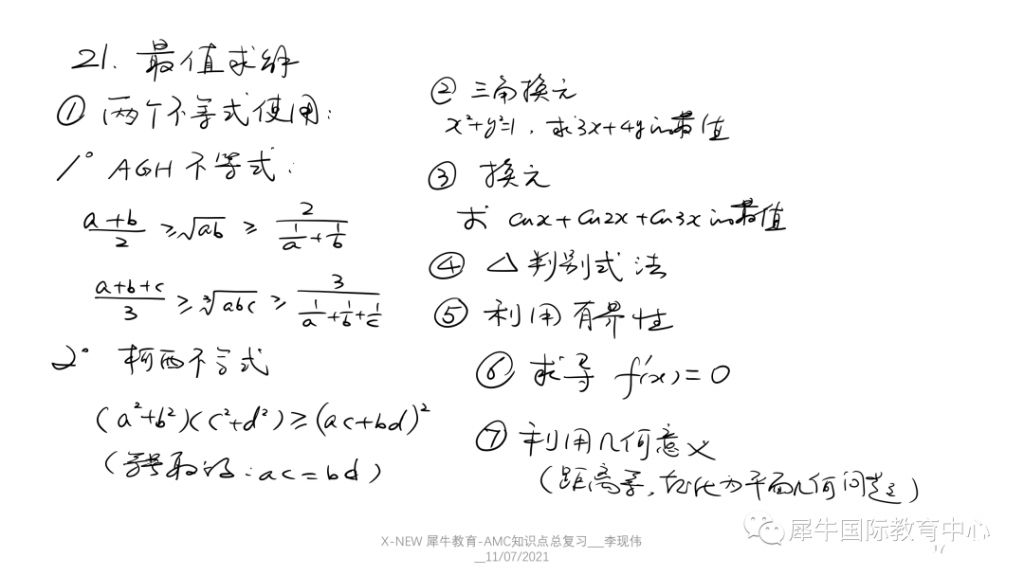 21. 最值求解
① 两个不等式使用:
1° AGH 不等式:
\frac{a+b}{2} ≥ \sqrt{ab} ≥ \frac{2}{\frac{1}{a}+\frac{1}{b}}
\frac{a+b+c}{3} ≥ \sqrt[3]{abc} ≥ \frac{3}{\frac{1}{a}+\frac{1}{b}+\frac{1}{c}}
2° 柯西不等式
(a²+b²)(c²+d²) ≥ (ac+bd)²
(等号取得: ac=bd)
② 三角换元
x²+y²=1, 求3x+4y的最值
③ 换元
求 cosx+cos2x+cos3x的最值
④ △判别式法
⑤ 利用有界性
⑥ 求导 f'(x)=0
⑦ 利用几何意义
(距离等,转化为平面几何问题)
X-NEW 犀牛教育-AMC知识点总复习__李现伟
__11/07/2021
犀牛国际教育中心
17